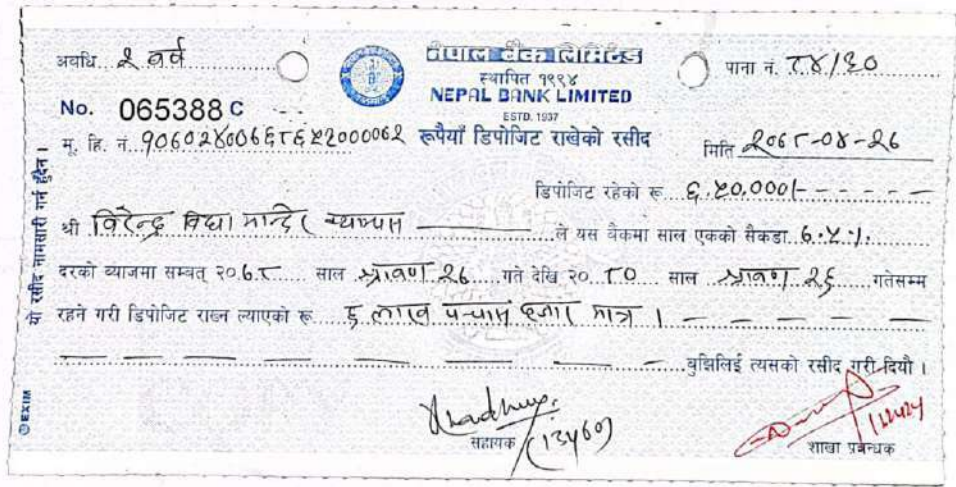 अवधि २ वर्ष
नेपाल बैंक लिमिटेड
पाना नं. ८४/६०
स्थापित १९९४
NEPAL BANK LIMITED
ESTD. 1937
No. 065388 C
मू. हि. नं.
रूपैयाँ डिपोजिट राखेको रसीद
मिति २०७८-०४-२६
डिपोजिट रहेको रू. ६,५०,०००/-
श्री विरेन्द्र विद्या मन्दिर ले यस बैंकमा साल एकको सैकडा
दरको ब्याजमा सम्वत् २०७८ साल श्रावण २६ गते देखि २०८० साल श्रावण २६ गतेसम्म
रहने गरी डिपोजिट राख्न ल्याएको रू. ६ लाख पचास हजार मात्र ।
बुझिलिई त्यसको रसीद गरी दियौं ।
सहायक
(13460)
शाखा प्रबन्धक
यो रसीद नामसारी गर्न हुँदैन ।
©EXIM